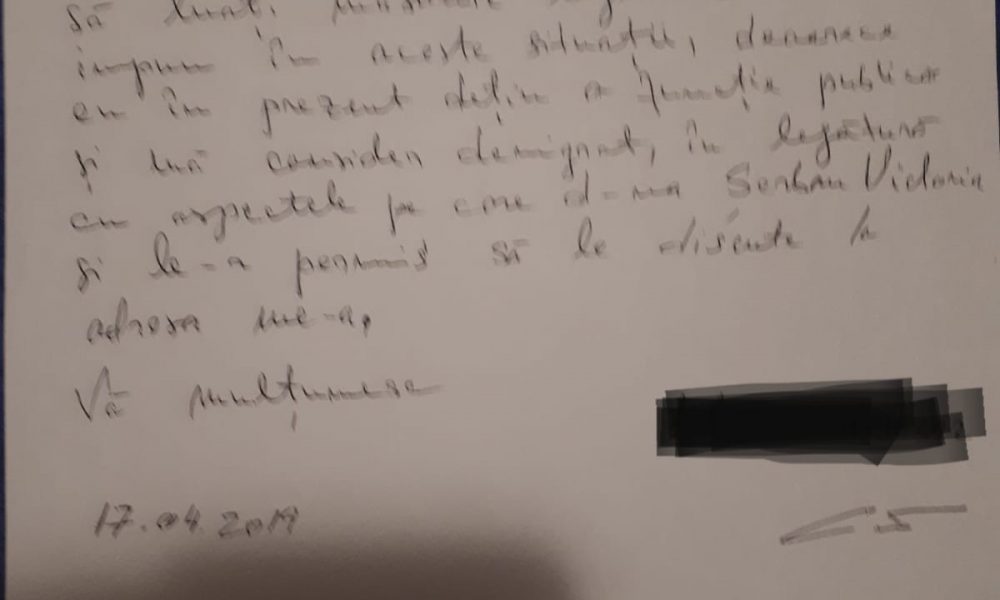 să luați măsurile
impun în aceste situații, deoarece
eu în prezent dețin o funcție publică
și mă consider denigrat, în legătură
cu aspectele pe care d-na Serban Victoria
și le-a permis să le discute la
adresa me-a,
Vă mulțumesc
17.04.2019